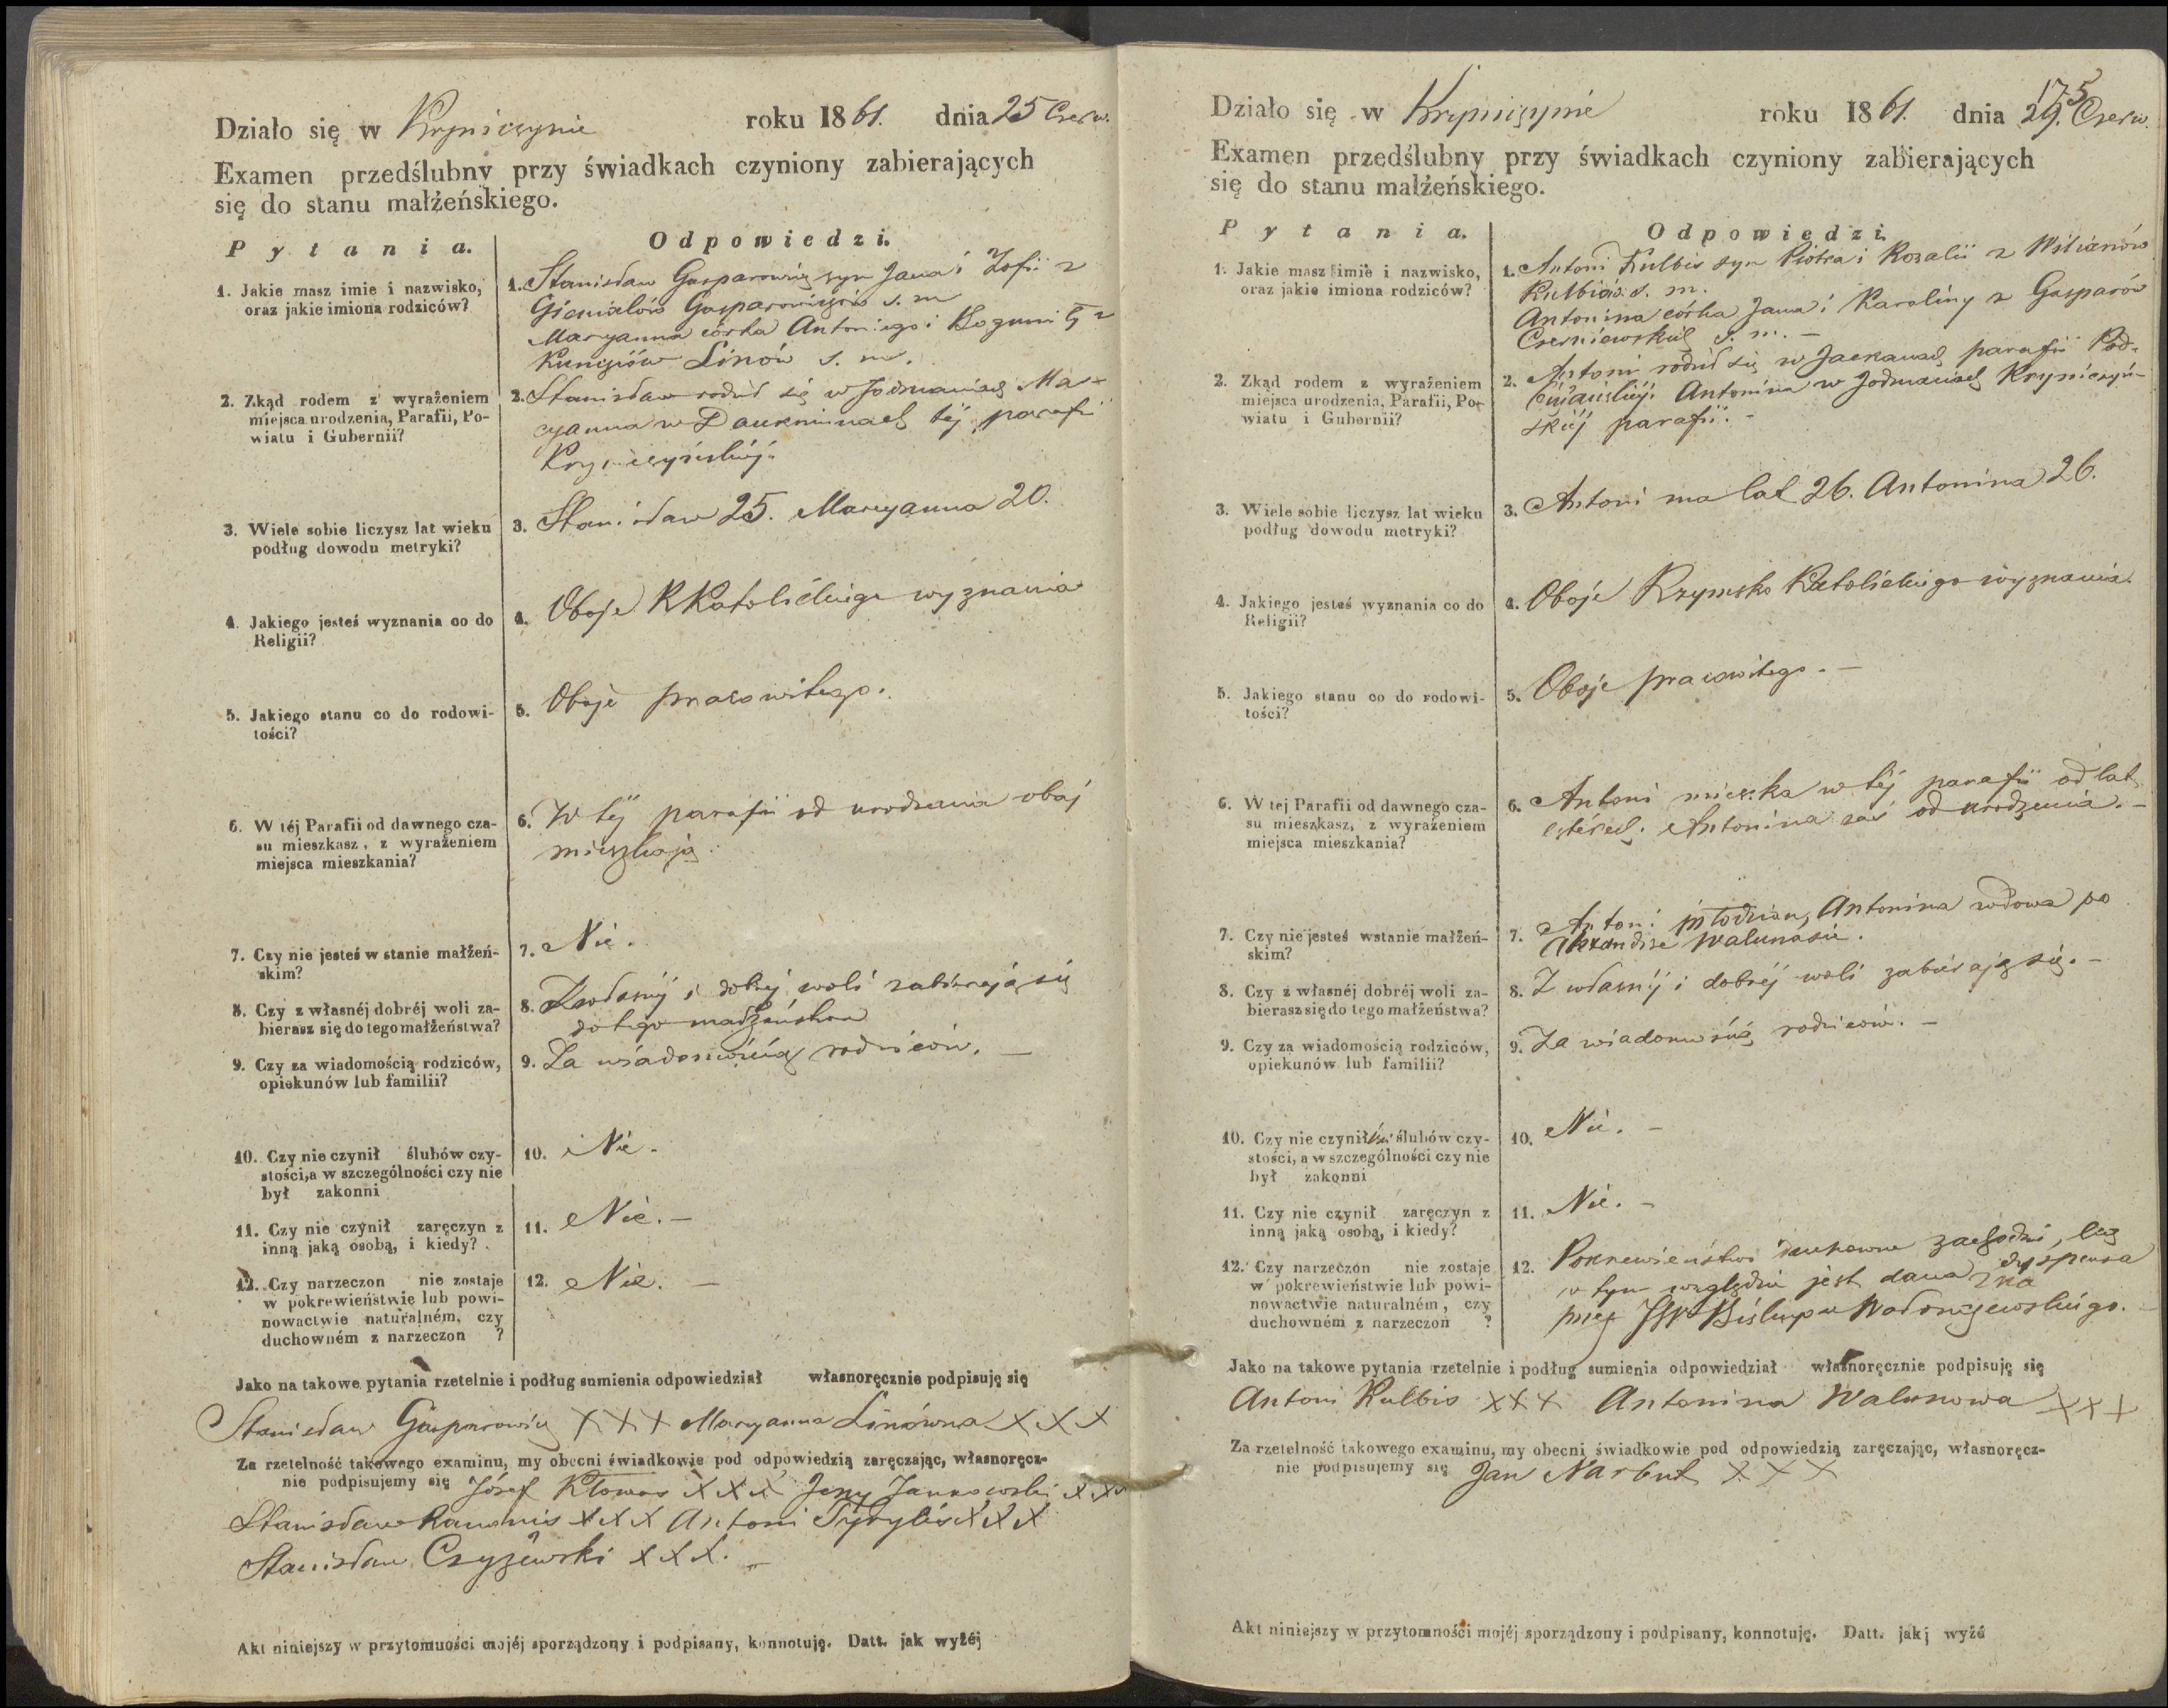 Działo się w Kryniczynie roku 1861. dnia 25 Czerw.
Examen przedślubny przy świadkach czyniony zabierających
się do stanu małżeńskiego.
Pytania. Odpowiedzi.
1. Jakie masz imie i nazwisko,
oraz jakie imiona rodziców?
1. Stanisław Gasparowicz syn Jana i Zofii z
Gasparowiczów s. m
Maryanna córka Antoniego i z
Linów s. m.
2. Zkąd rodem z wyrażeniem
miejsca urodzenia, Parafii, Po-
wiatu i Gubernii?
2. Stanisław rodził się w Jodmaniach Ma-
ryanna w téj parafii
Kryniczyńskiéj.
3. Wiele sobie liczysz lat wieku
podług dowodu metryki?
3. Stanisław 25. Maryanna 20.
4. Jakiego jesteś wyznania co do
Religii?
4. Oboje RKatolickiego wyznania
5. Jakiego stanu co do rodowi-
tości?
5. Oboje pracowitego.
6. W téj Parafii od dawnego cza-
su mieszkasz, z wyrażeniem
miejsca mieszkania?
6. W téj parafii od urodzenia oboj
mieszkają.
7. Czy nie jesteś w stanie małżeń-
skim?
7. Nie.
8. Czy z własnéj dobréj woli za-
bierasz się do tego małżeństwa?
8. Z własnéj i dobréj woli zabierają się
do tego małżeństwa
9. Czy za wiadomością rodziców,
opiekunów lub familii?
9. Za wiadomością rodziców. —
10. Czy nie czynił ślubów czy-
stości, a w szczególności czy nie
był zakonni
10. Nie.
11. Czy nie czynił zaręczyn z
inną jaką osobą, i kiedy?
11. Nie. —
12. Czy narzeczon nie zostaje
w pokrewieństwie lub powi-
nowactwie naturalném, czy
duchowném z narzeczon ?
12. Nie. —
Jako na takowe pytania rzetelnie i podług sumienia odpowiedział własnoręcznie podpisuję się
Stanisław Gasparowicz XXX Maryanna Linówna XXX
Za rzetelność takowego examinu, my obecni świadkowie pod odpowiedzią zaręczając, własnoręcz-
nie podpisujemy się Józef XXX Jerzy Jankowski XXX
Stanisław XXX Antoni XXX
Stanisław Czyżewski XXX. —
Akt niniejszy w przytomności mojéj sporządzony i podpisany, konnotuję. Datt. jak wyżéj
175
Działo się w Kryniczynie roku 1861. dnia 29. Czerw.
Examen przedślubny przy świadkach czyniony zabierających
się do stanu małżeńskiego.
Pytania. Odpowiedzi.
1. Jakie masz imie i nazwisko,
oraz jakie imiona rodziców?
1. Antoni Kulbis syn Piotra i Rozalii z
Kulbisów s. m.
Antonina córka Jana i Karoliny z Gasparów
Czerniewskich s. m. —
2. Zkąd rodem z wyrażeniem
miejsca urodzenia, Parafii, Po-
wiatu i Gubernii?
2. Antoni rodził się w parafii Pod-
Antonina w Jodmaniach Kryniczyń-
skiéj parafii. —
3. Wiele sobie liczysz lat wieku
podług dowodu metryki?
3. Antoni ma lat 26. Antonina 26.
4. Jakiego jesteś wyznania co do
Religii?
4. Oboje Rzymsko Katolickiego wyznania.
5. Jakiego stanu co do rodowi-
tości?
5. Oboje pracowitego. —
6. W tej Parafii od dawnego cza-
su mieszkasz, z wyrażeniem
miejsca mieszkania?
6. Antoni mieszka w téj parafii od lat
czterech. Antonina zaś od urodzenia. —
7. Czy nie jesteś wstanie małżeń-
skim?
7. Antoni młodzian, Antonina wdowa po
Walunasie.
8. Czy z własnéj dobréj woli za-
bierasz się do tego małżeństwa?
8. Z własnéj i dobréj woli zabierają się. —
9. Czy za wiadomością rodziców,
opiekunów lub familii?
9. Za wiadomością rodziców. —
10. Czy nie czynił ślubów czy-
stości, a w szczególności czy nie
był zakonni
10. Nie. —
11. Czy nie czynił zaręczyn z
inną jaką osobą, i kiedy?
11. Nie. —
12. Czy narzeczon nie zostaje
w pokrewieństwie lub powi-
nowactwie naturalném, czy
duchowném z narzeczon ?
12. Pokrewieństwo duchowne zachodzi, lecz
w tym względzie jest dana dyspensa
przez Biskupa Wołonczewskiego. —
Jako na takowe pytania rzetelnie i podług sumienia odpowiedział własnoręcznie podpisuję się
Antoni Kulbis XXX Antonina Walunowa XXX
Za rzetelność takowego examinu, my obecni świadkowie pod odpowiedzią zaręczając, własnoręcz-
nie podpisujemy się Jan Narbut XXX
Akt niniejszy w przytomności mojéj sporządzony i podpisany, konnotuję. Datt. jakj wyżé